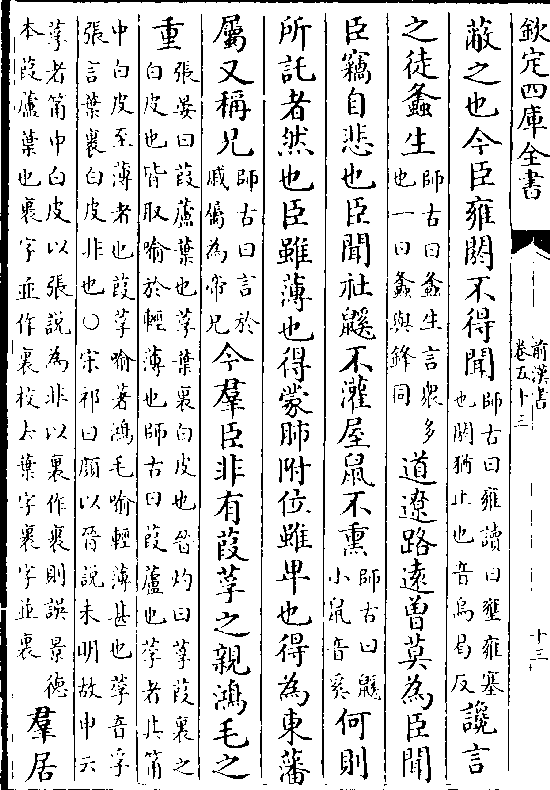 欽定四庫全書
前漢書
卷五十三
十三
蔽之也今臣雍閼不得聞師古曰雍讀曰壅雍塞也閼猶止也音烏曷反讒言
之徒蠭生師古曰蠭生言衆多也一曰蠭與鋒同道遼路遠曽莫為臣聞
臣竊自悲也臣聞社鼷不灌屋鼠不熏師古曰鼷小鼠音奚何則
所託者然也臣雖薄也得蒙肺附位雖卑也得為東藩
屬又稱兄師古曰言於戚屬為帝兄今羣臣非有葭莩之親鴻毛之
重張晏曰葭蘆葉也莩葉裏白皮也晉灼曰莩葭裏之白皮也皆取喻於輕薄也師古曰葭蘆也莩者其筩
中白皮至薄者也葭莩喻著鴻毛喻輕薄甚也莩音孚張言葉裏白皮非也○宋祁曰顔以晉説未明故申云
莩者筩中白皮以張説為非以裏作裹則誤景德本葭蘆葉也裹字並作裏校去葉字裹字並裏羣居